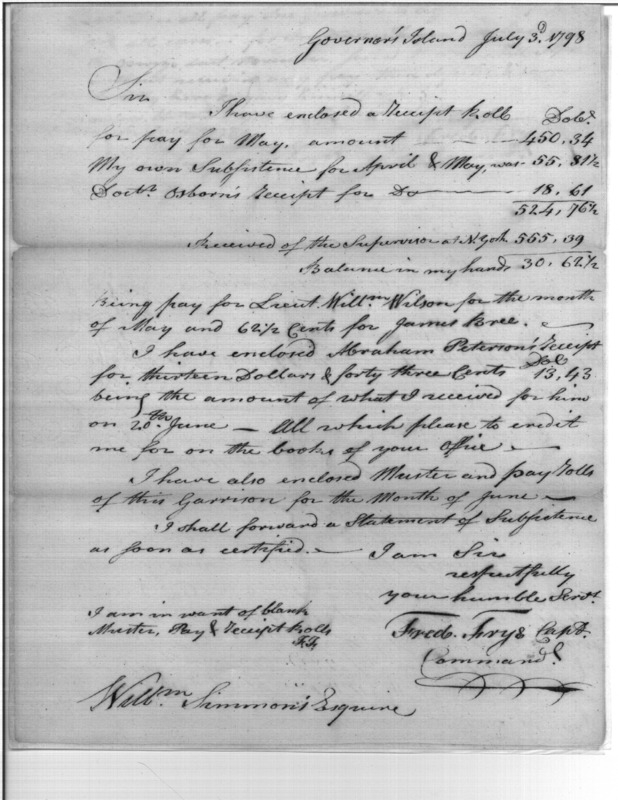 Governor's Island July 3d. 1798
Sir
I have enclosed a receipt Roll Dolls.
for pay for May, amount — 450,34
My own Subsistence for April & May, was 55,81 1/2
Doctr. Osborn's receipt for Do — 18,61
524,76 1/2
Received of the Supervisor at N. York 555,39
Balance in my hands 30,62 1/2
being pay for Lieut. Willm Wilson for the month
of May and 62 1/2 Cents for James Bree.
I have enclosed Abraham Peterson's receipt
for thirteen Dollars & forty three Cents Dol 13,43
being the amount of what I received for him
on 20th June — All which please to credit
me for on the books of your Office —
I have also enclosed Muster and pay rolls
of this Garrison for the Month of June —
I shall forward a Statement of Subsistence
as soon as certified. — I am Sir
respectfully
your humble Servt.
Fredk. Frye Capt.
Commandt.
I am in want of blank
Muster, Pay & receipt Rolls
F.F.
Willm Simmon's Esquire